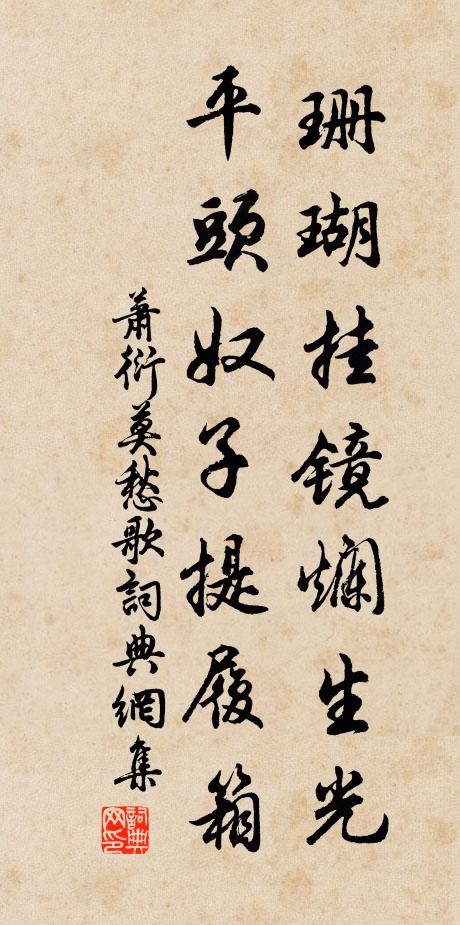 珊瑚挂镜爛生光
平頭奴子提履箱
萧衍莫愁歌詞典網集
詞典网印